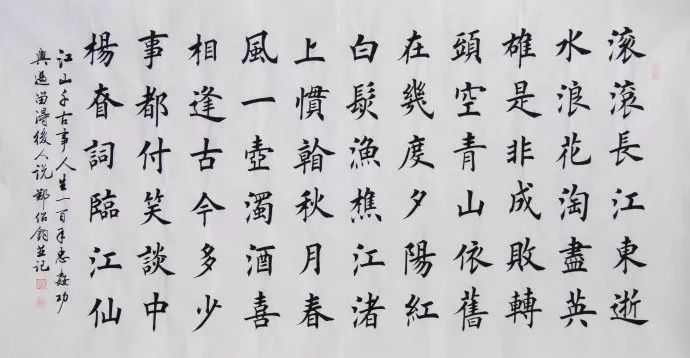 滚滚長江東逝
水浪花淘盡英
雄是非成敗轉
頭空青山依舊
在幾度夕陽紅
白髮漁樵江渚
上慣翰秋月春
風一壺濁酒喜
相逢古今多少
事都付笑談中
楊眘詞臨江仙
江山千古事人生一百年忠姦功
與過留得後人说 鄭 並记